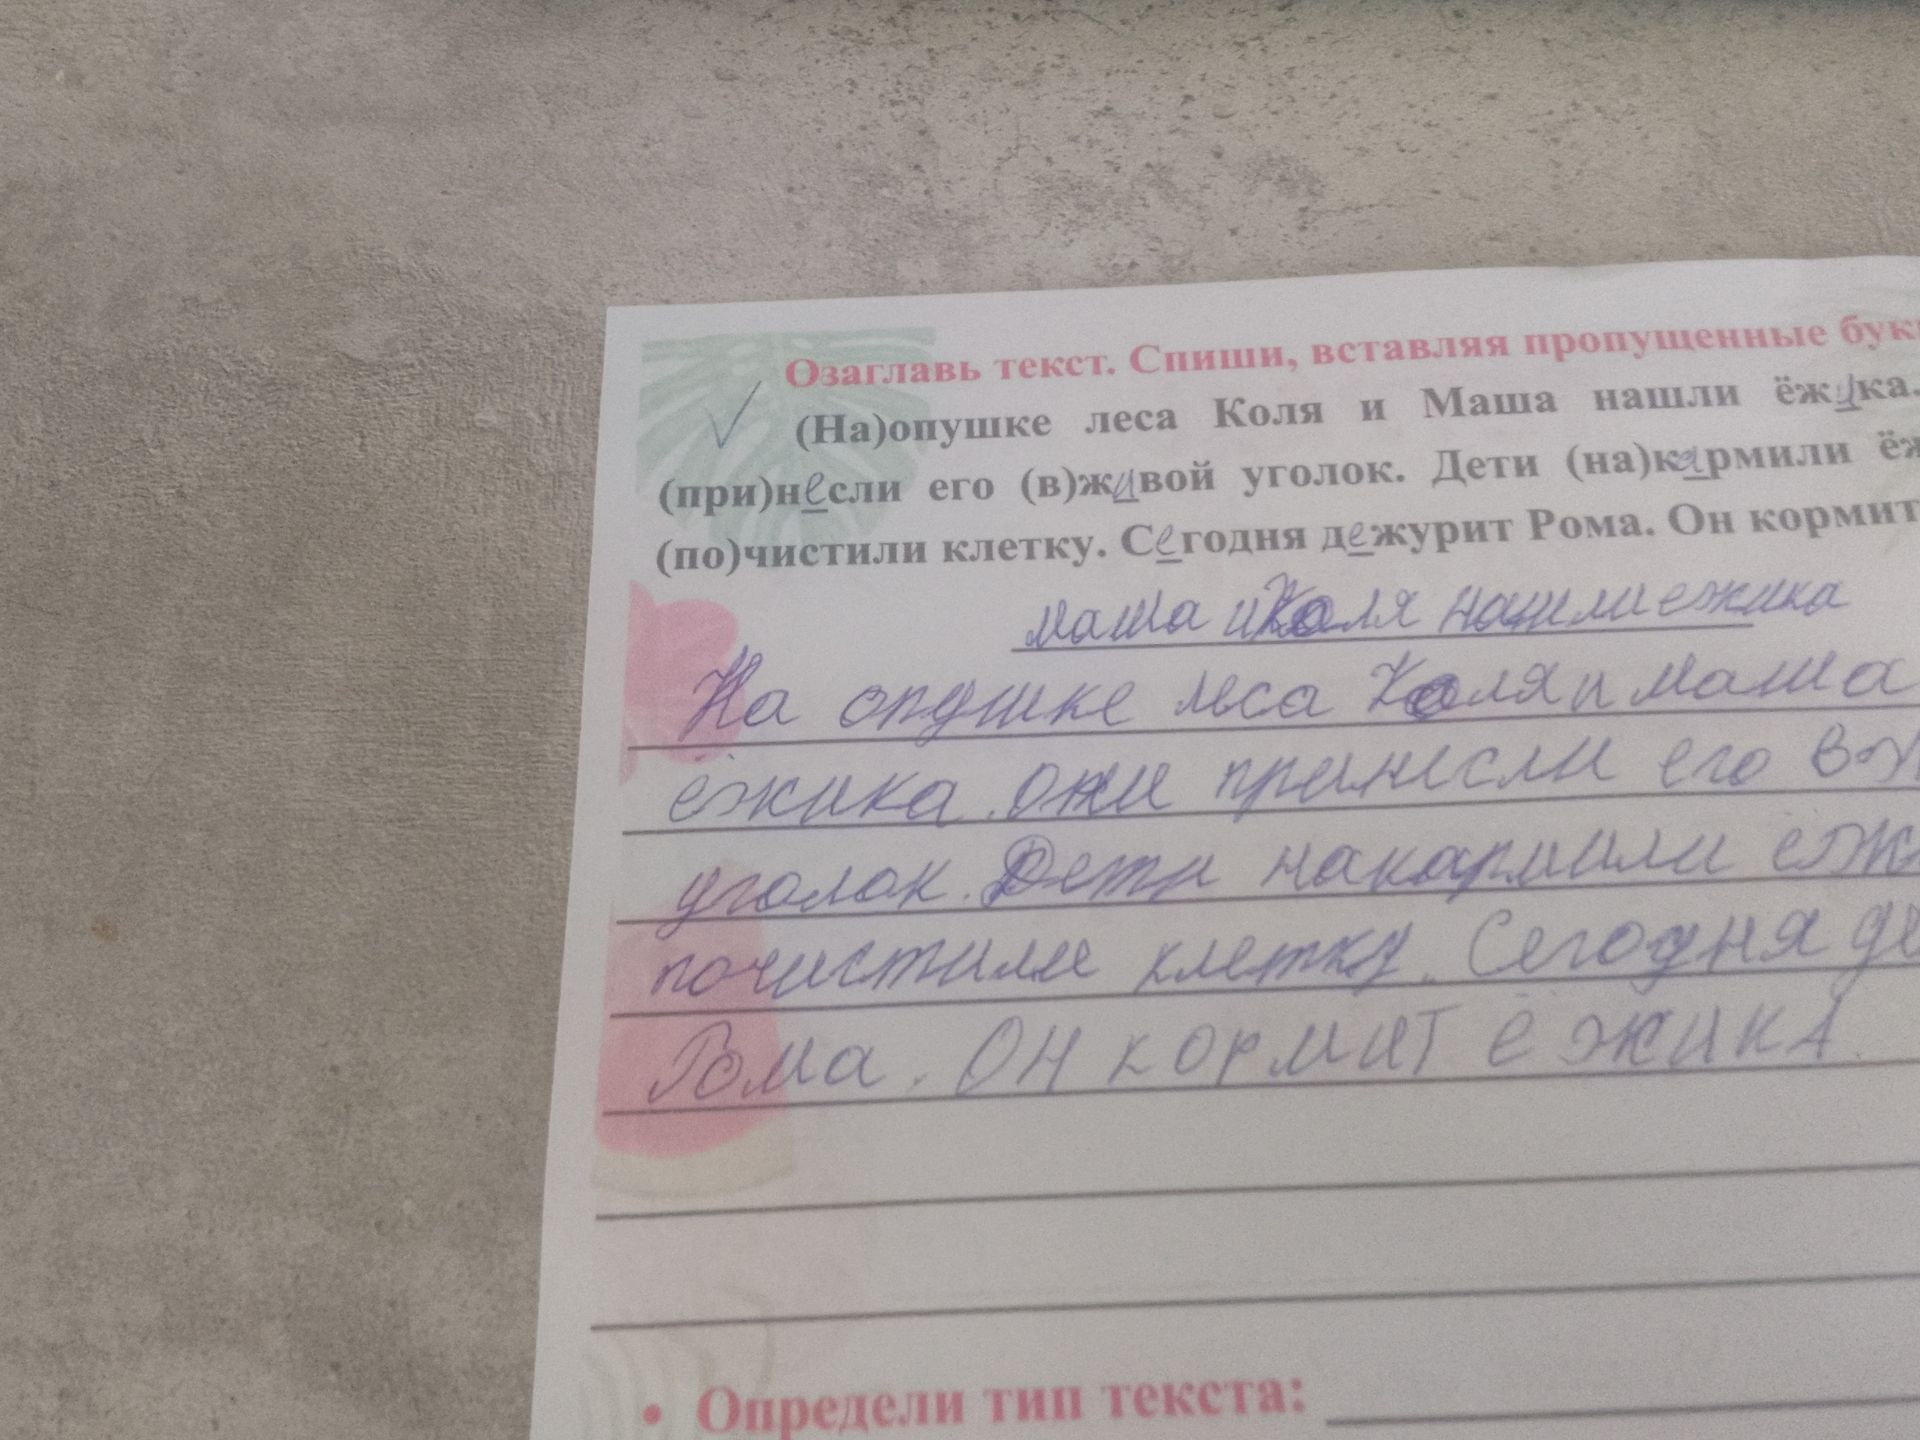 Озаглавь текст. Спиши, вставляя пропущенные бук
(На)опушке леса Коля и Маша нашли ёжика.
(при)несли его (в)живой уголок. Дети (на)кармили ёж
(по)чистили клетку. Сегодня дежурит Рома. Он кормит
маша и Коля нашли ежика
На опушке леса Коля и маша
ёжика. они принесли его в ж
уголок. Дети накармили ежи
почистили клетку. Сегодня де
Рома. Он кормит ёжика
• Определи тип текста: